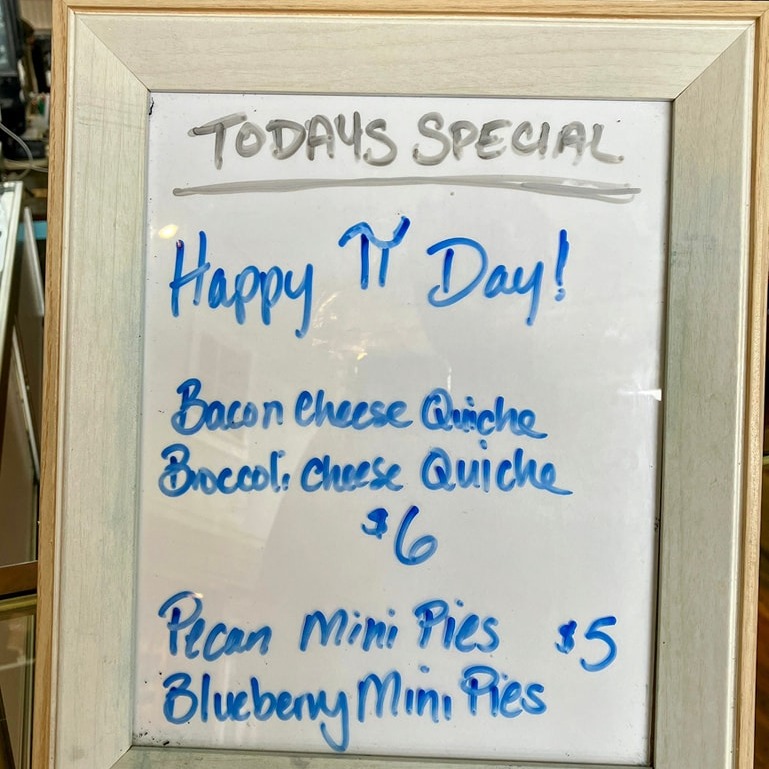 TODAYS SPECIAL
Happy π Day!
Bacon Cheese Quiche
Broccoli Cheese Quiche
$6
Pecan Mini Pies $5
Blueberry Mini Pies